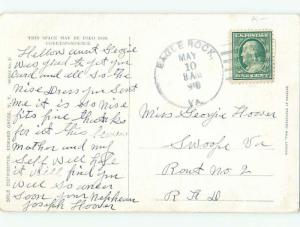 THIS SPACE MAY BE USED FOR
CORRESPONDENCE
Hallow aunt Gergie
Was glad to get you
Card and all So the
Nise Dress you Sent
Me it is so Nise
fits fine thanks
for it this leaves
Mother and my
Self Well Hope
it will find you
Well So answer
Soon your Nephew
Joseph Hoover
EAGLE ROCK,
MAY
10
8 AM
VA.
ONE CENT
Miss Georgie Hoover
Swoope Va
Rout No. 2
R F D